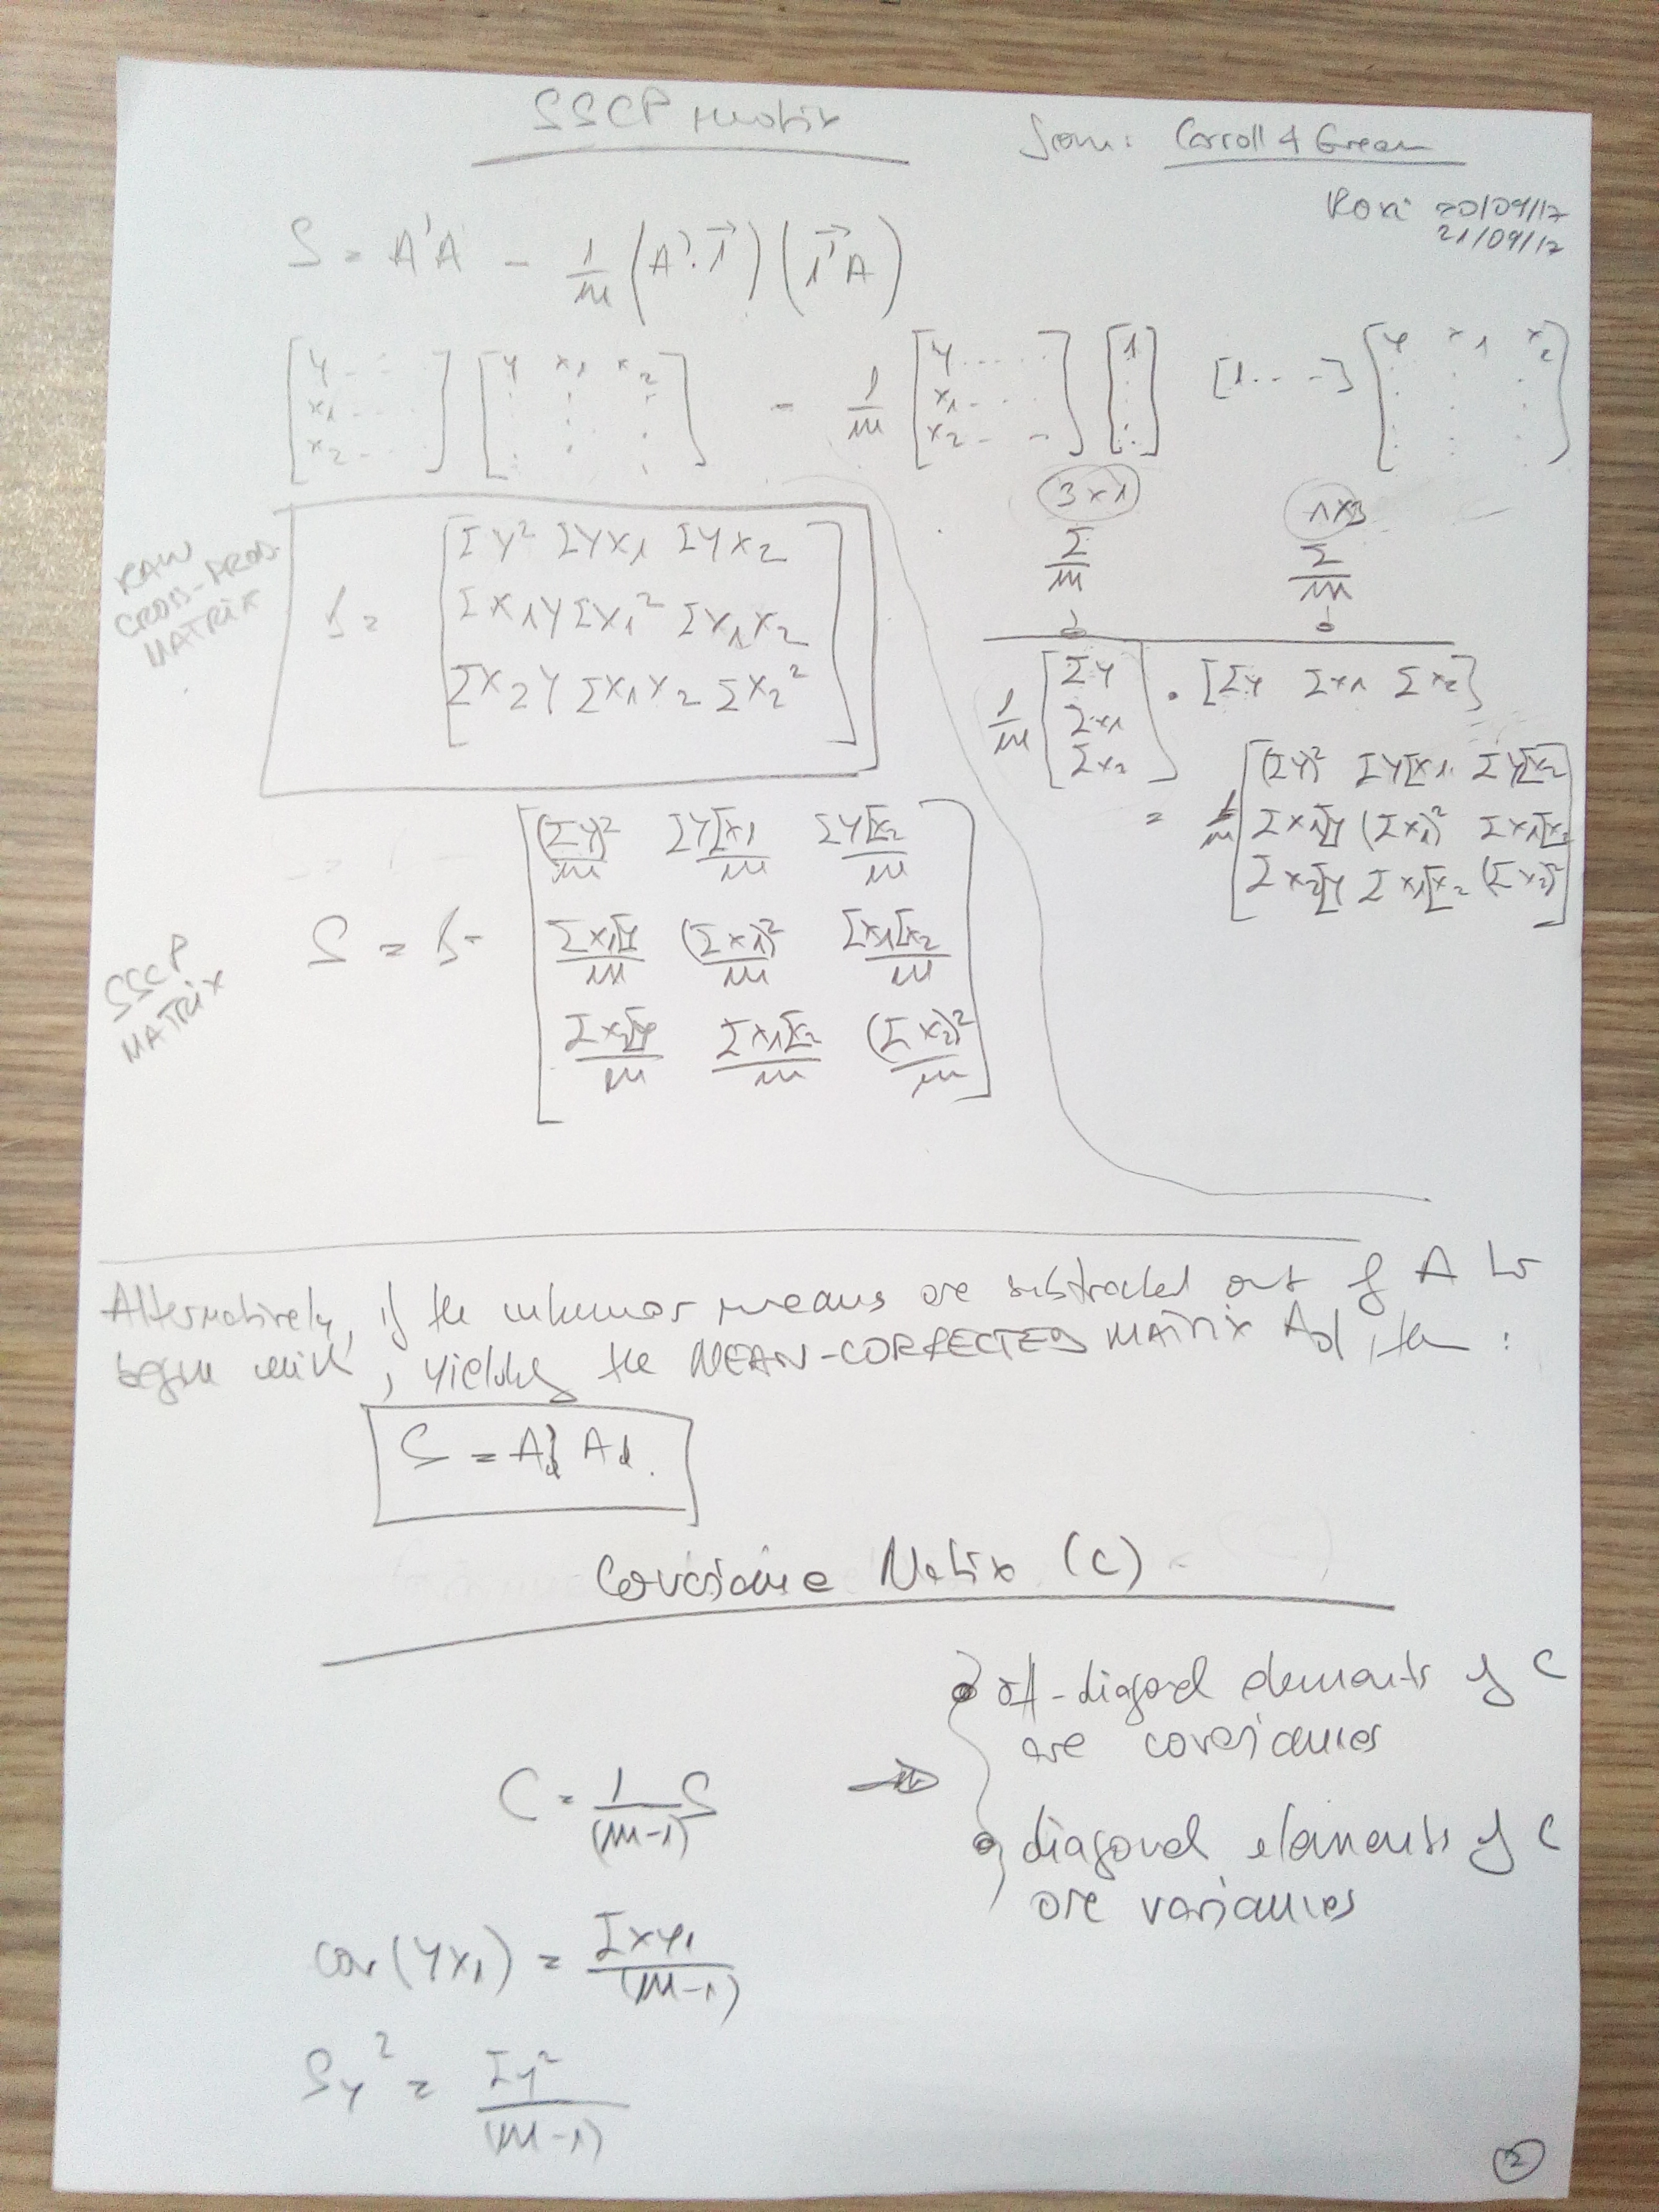 SSCP matrix
from: Carroll & Green
Roxi 20/09/17
21/09/17
S = A'A - 1/m (A'·1⃗) (1⃗'A)
[Y ... x1 ... x2 ...] [Y x1 x2] - 1/m [Y ... x1 ... x2 ...] [1] [1 ...] [Y x1 x2]
3x1 1x3
Σ/m Σ/m
RAW
CROSS-PROD.
MATRIX
ΣY² ΣYX1 ΣYX2
ΣX1Y ΣX1² ΣX1X2
ΣX2Y ΣX1X2 ΣX2²
1/m [ΣY Σx1 Σx2] · [ΣY Σx1 Σx2]
= 1/m
(ΣY)² ΣYΣx1 ΣYΣx2
Σx1ΣY (Σx1)² Σx1Σx2
Σx2ΣY Σx1Σx2 (Σx2)²
SSCP
MATRIX
S =
(ΣY)²/m ΣYΣx1/m ΣYΣx2/m
Σx1ΣY/m (Σx1)²/m Σx1Σx2/m
Σx2ΣY/m Σx1Σx2/m (Σx2)²/m
Alternatively, if the means are subtracted out of A to
begin with, yielding the MEAN-CORRECTED MATRIX Ad, then :
S = Ad' Ad.
Covariance Matrix (C)
C = 1/(m-1) S
off-diagonal elements of C
are covariances
diagonal elements of C
are variances
cov(YX1) = Σxy1/(m-1)
SY² = Σy²/(m-1)
2